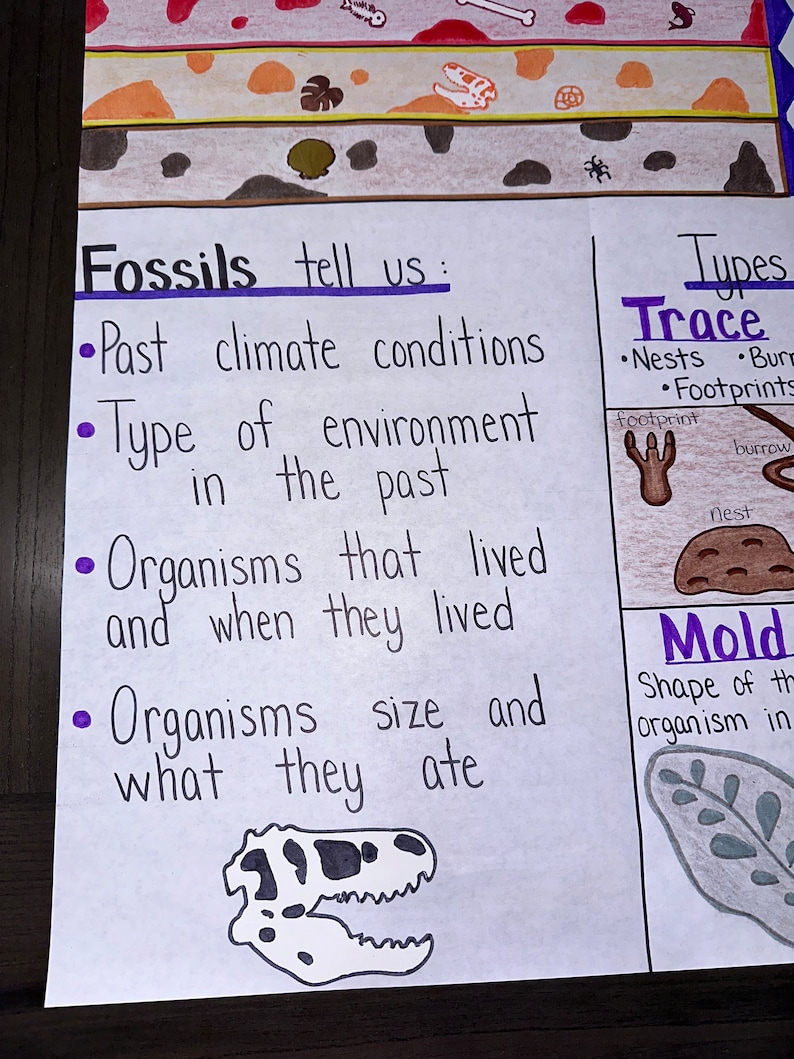 Fossils tell us:
•Past climate conditions
•Type of environment
in the past
•Organisms that lived
and when they lived
•Organisms size and
what they ate
Types
Trace
•Nests •Burr
•Footprints
footprint
burrow
nest
Mold
Shape of th
organism in